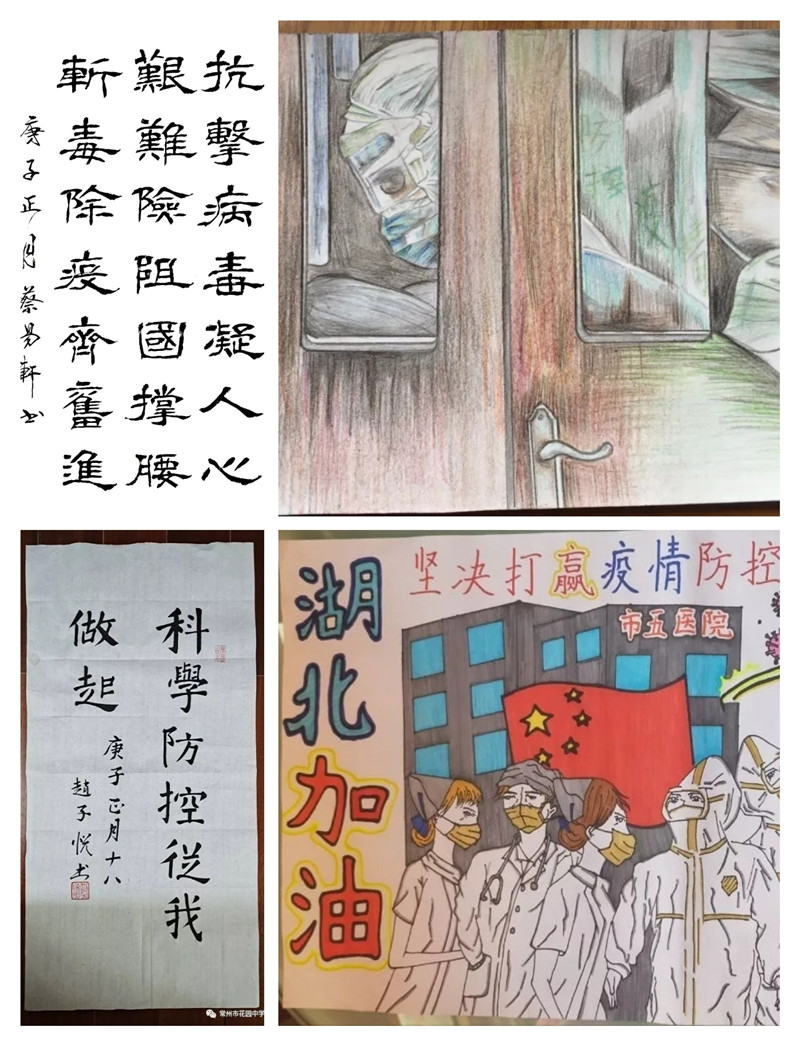 抗擊病毒凝人心
艱難險阻國撐腰
斬毒除疫齊奮進
庚子正月蔡易軒书
科學防控從我
做起
庚子正月十八
趙子悦书
常州市花园中学
坚决打赢疫情防控
市五医院
湖北加油